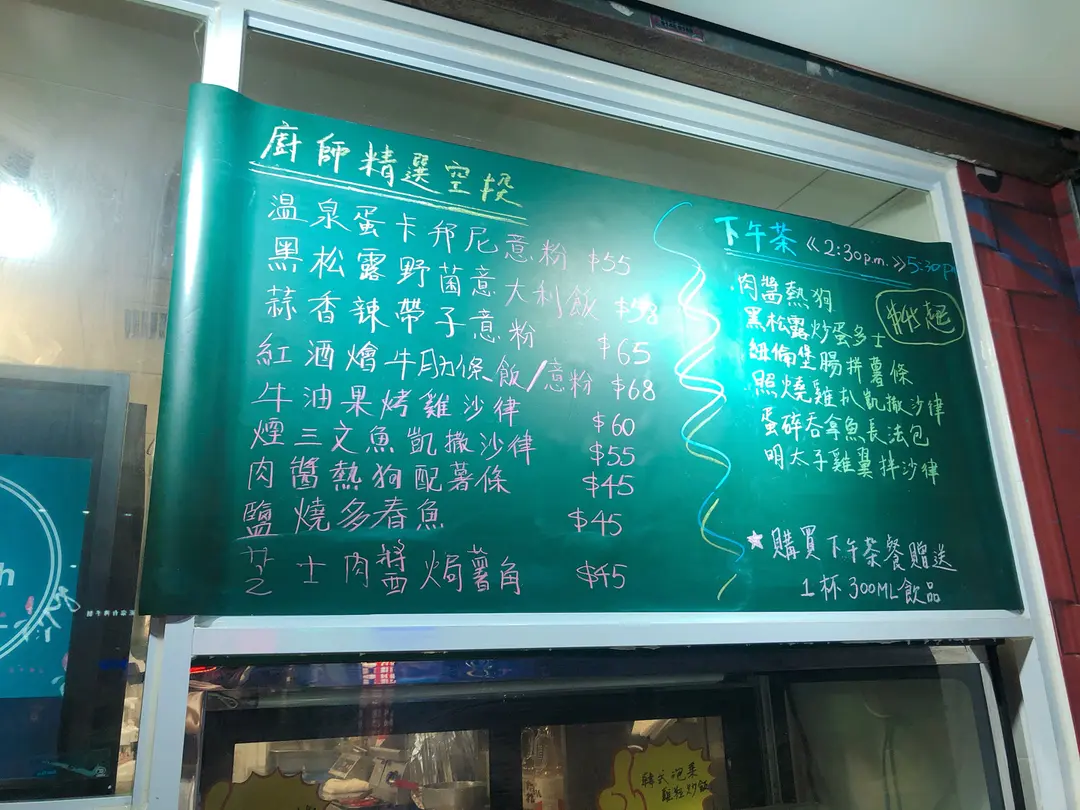 廚師精選空投
温泉蛋卡邦尼意粉 $55
黑松露野菌意大利飯 $58
蒜香辣帶子意粉 $65
紅酒燴牛肋條飯/意粉 $68
牛油果烤雞沙律 $60
煙三文魚凱撒沙律 $55
肉醬熱狗配薯條 $45
鹽燒多春魚 $45
芝士肉醬焗薯角 $45
下午茶 《2:30p.m.》5:30p
肉醬熱狗
黑松露炒蛋多士
紐倫堡腸拼薯條
照燒雞扒凱撒沙律
蛋碎吞拿魚長法包
明太子雞翼拌沙律
★購買下午茶餐贈送
1杯300ML飲品
韓式泡菜